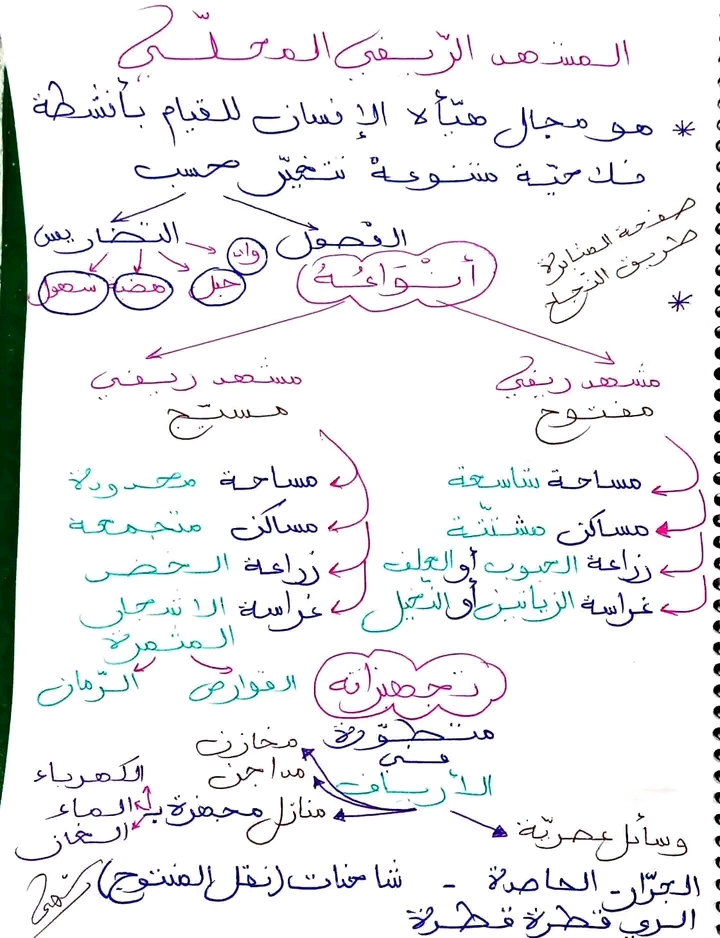 المشهد الرّيفي المحلّي
* هو مجال هيّأه الإنسان للقيام بأنشطة
فلاحيّة متنوعة تتغيّر حسب
الفصول
التضاريس
واد
جبل
هضبة
سهول
صفحة المثابرة
طريق النجاح
*
أنْوَاعُهُ
مشهد ريفي
مفتوح
مساحة شاسعة
مساكن مشتّتة
زراعة الحبوب أو العلف
غراسة الزياتين أو النخيل
مشهد ريفي
مسيّج
مساحة محدودة
مساكن متجمعة
زراعة الخضر
غراسة الاشجار
المثمرة
القوارص
الرّمان
تجهيزاته
متطوّرة
في
الأرياف
مخازن
مداجن
منازل مجهزة بـ
الكهرباء
الماء
الغاز
وسائل عصريّة
الجرّار - الحاصدة - شاحنات (نقل المنتوج)
الري قطرة قطرة